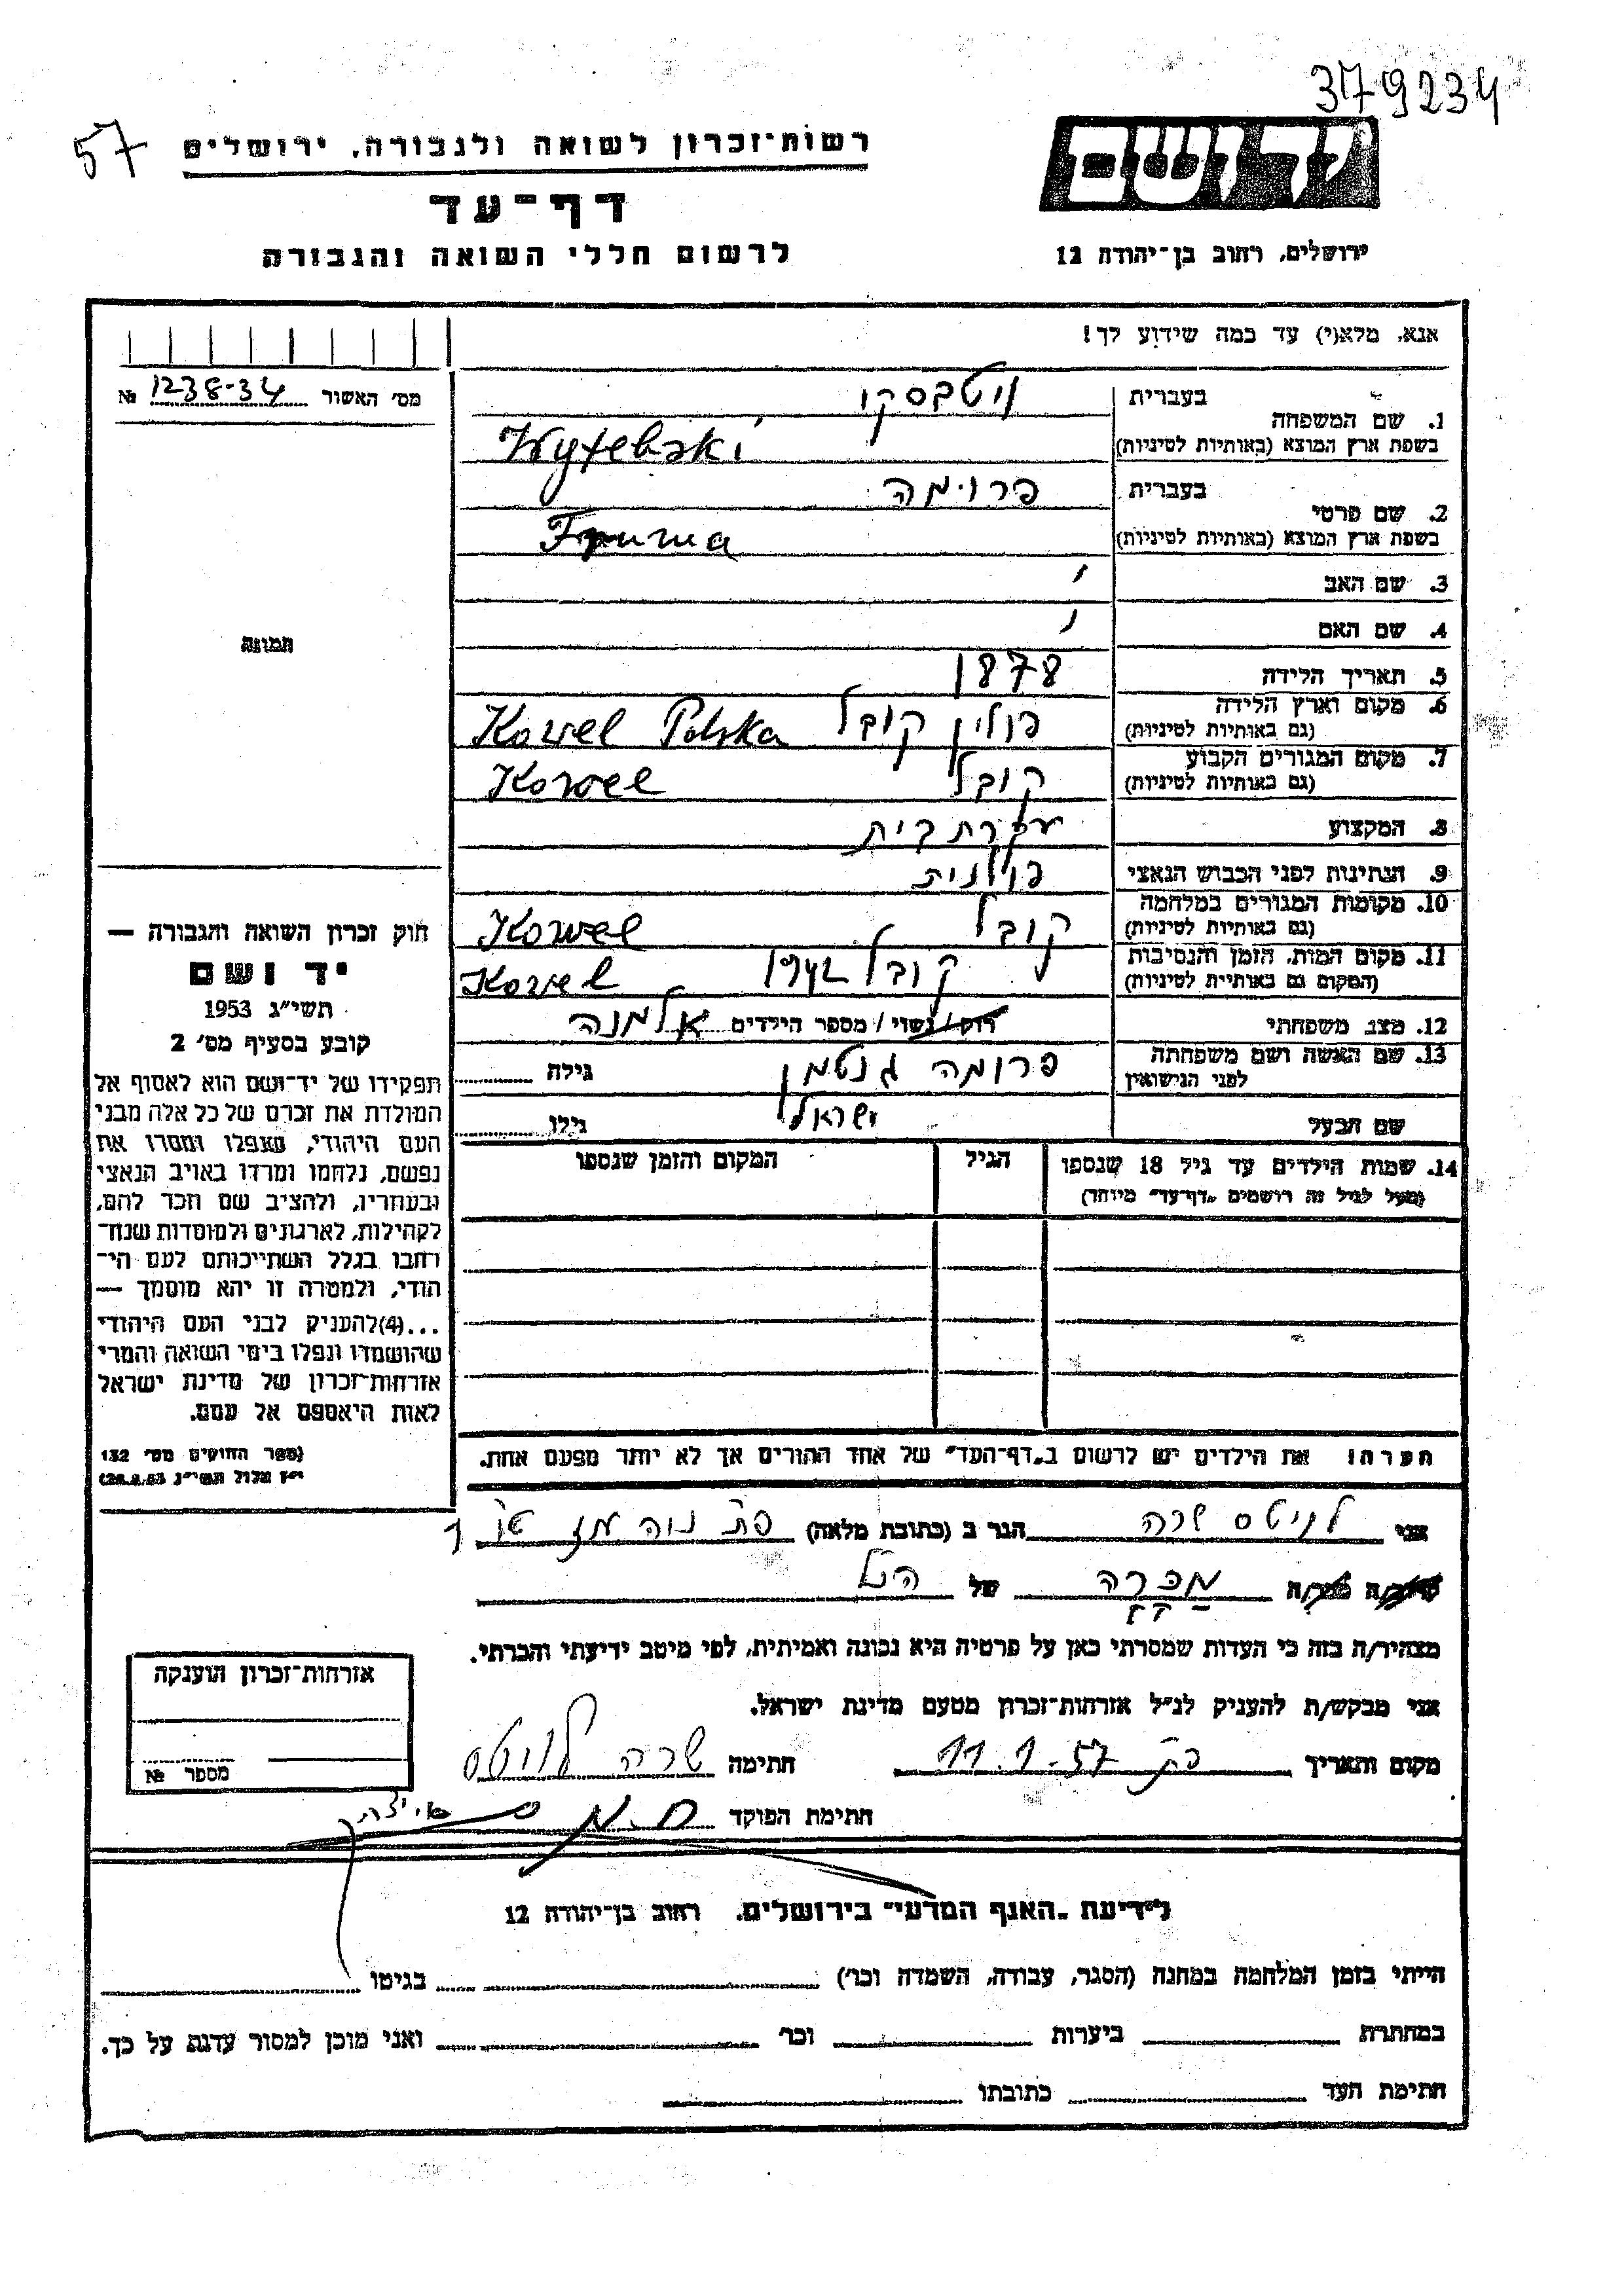 379234
57
רשות־זכרון לשואה ולגבורה, ירושלים
דף־עד
לרשום חללי השואה והגבורה
יד ושם
ירושלים, רחוב בן־יהודה 12
אנא, מלא(י) עד כמה שידוע לך!
מס' האשור 1238-34 №
בעברית
1. שם המשפחה
בשפת ארץ המוצא (באותיות לטיניות)
ויטבסקי
Wytebski
בעברית
2. שם פרטי
בשפת ארץ המוצא (באותיות לטיניות)
פרומה
3. שם האב
4. שם האם
5. תאריך הלידה 1878
6. מקום וארץ הלידה
(גם באותיות לטיניות)
פולין קובל Kowel Polska
7. מקום המגורים הקבוע
(גם באותיות לטיניות)
קובל Kowel
8. המקצוע עקרת בית
9. הנתינות לפני הכבוש הנאצי פולנית
10. מקומות המגורים במלחמה
(גם באותיות לטיניות)
קובל Kowel
11. מקום המות, הזמן והנסיבות
(המקום גם באותיות לטיניות)
קובל Kowel
12. מצב משפחתי רוק/נשוי/מספר הילדים אלמנה
13. שם האשה ושם משפחתה
לפני הנישואין
פרומה גנטמן גילה
שם הבעל ישראל גילו
14. שמות הילדים עד גיל 18 שנספו
(מעל לגיל זה רושמים „דף־עד” מיוחד)
הגיל
המקום והזמן שנספו
הערה: את הילדים יש לרשום ב„דף־העד” של אחד ההורים אך לא יותר מפעם אחת.
תמונה
חוק זכרון השואה והגבורה —
יד ושם
תשי״ג 1953
קובע בסעיף מס' 2
תפקידו של יד־ושם הוא לאסוף אל
המולדת את זכרם של כל אלה מבני
העם היהודי, שנפלו ומסרו את
נפשם, נלחמו ומרדו באויב הנאצי
ובעוזריו, ולהציב שם וזכר להם,
לקהילות, לארגונים ולמוסדות שנח־
רבו בגלל השתייכותם לעם הי־
הודי, ולמטרה זו יהא מוסמך —
...(4)להעניק לבני העם היהודי
שהושמדו ונפלו בימי השואה והמרי
אזרחות־זכרון של מדינת ישראל
לאות היאספם אל עמם.
(ספר החוקים מס' 132
י״ז אלול תשי״ג 28.8.53)
אני לויטס שרה הגר ב (כתובת מלאה) פת נוה
מכרה של הנ״ל
מצהיר/ה בזה כי העדות שמסרתי כאן על פרטיה היא נכונה ואמיתית, לפי מיטב ידיעתי והכרתי.
אני מבקש/ת להעניק לנ״ל אזרחות־זכרון מטעם מדינת ישראל.
מקום ותאריך פת 11.1.57 חתימה שרה לויטס
חתימת הפוקד
אזרחות־זכרון הוענקה
מספר №
לידיעת „האגף המדעי” בירושלים, רחוב בן־יהודה 12
הייתי בזמן המלחמה במחנה (הסגר, עבודה, השמדה וכר') בגיטו
במחתרת ביערות וכר' ואני מוכן למסור עדות על כך.
חתימת העד כתובתו